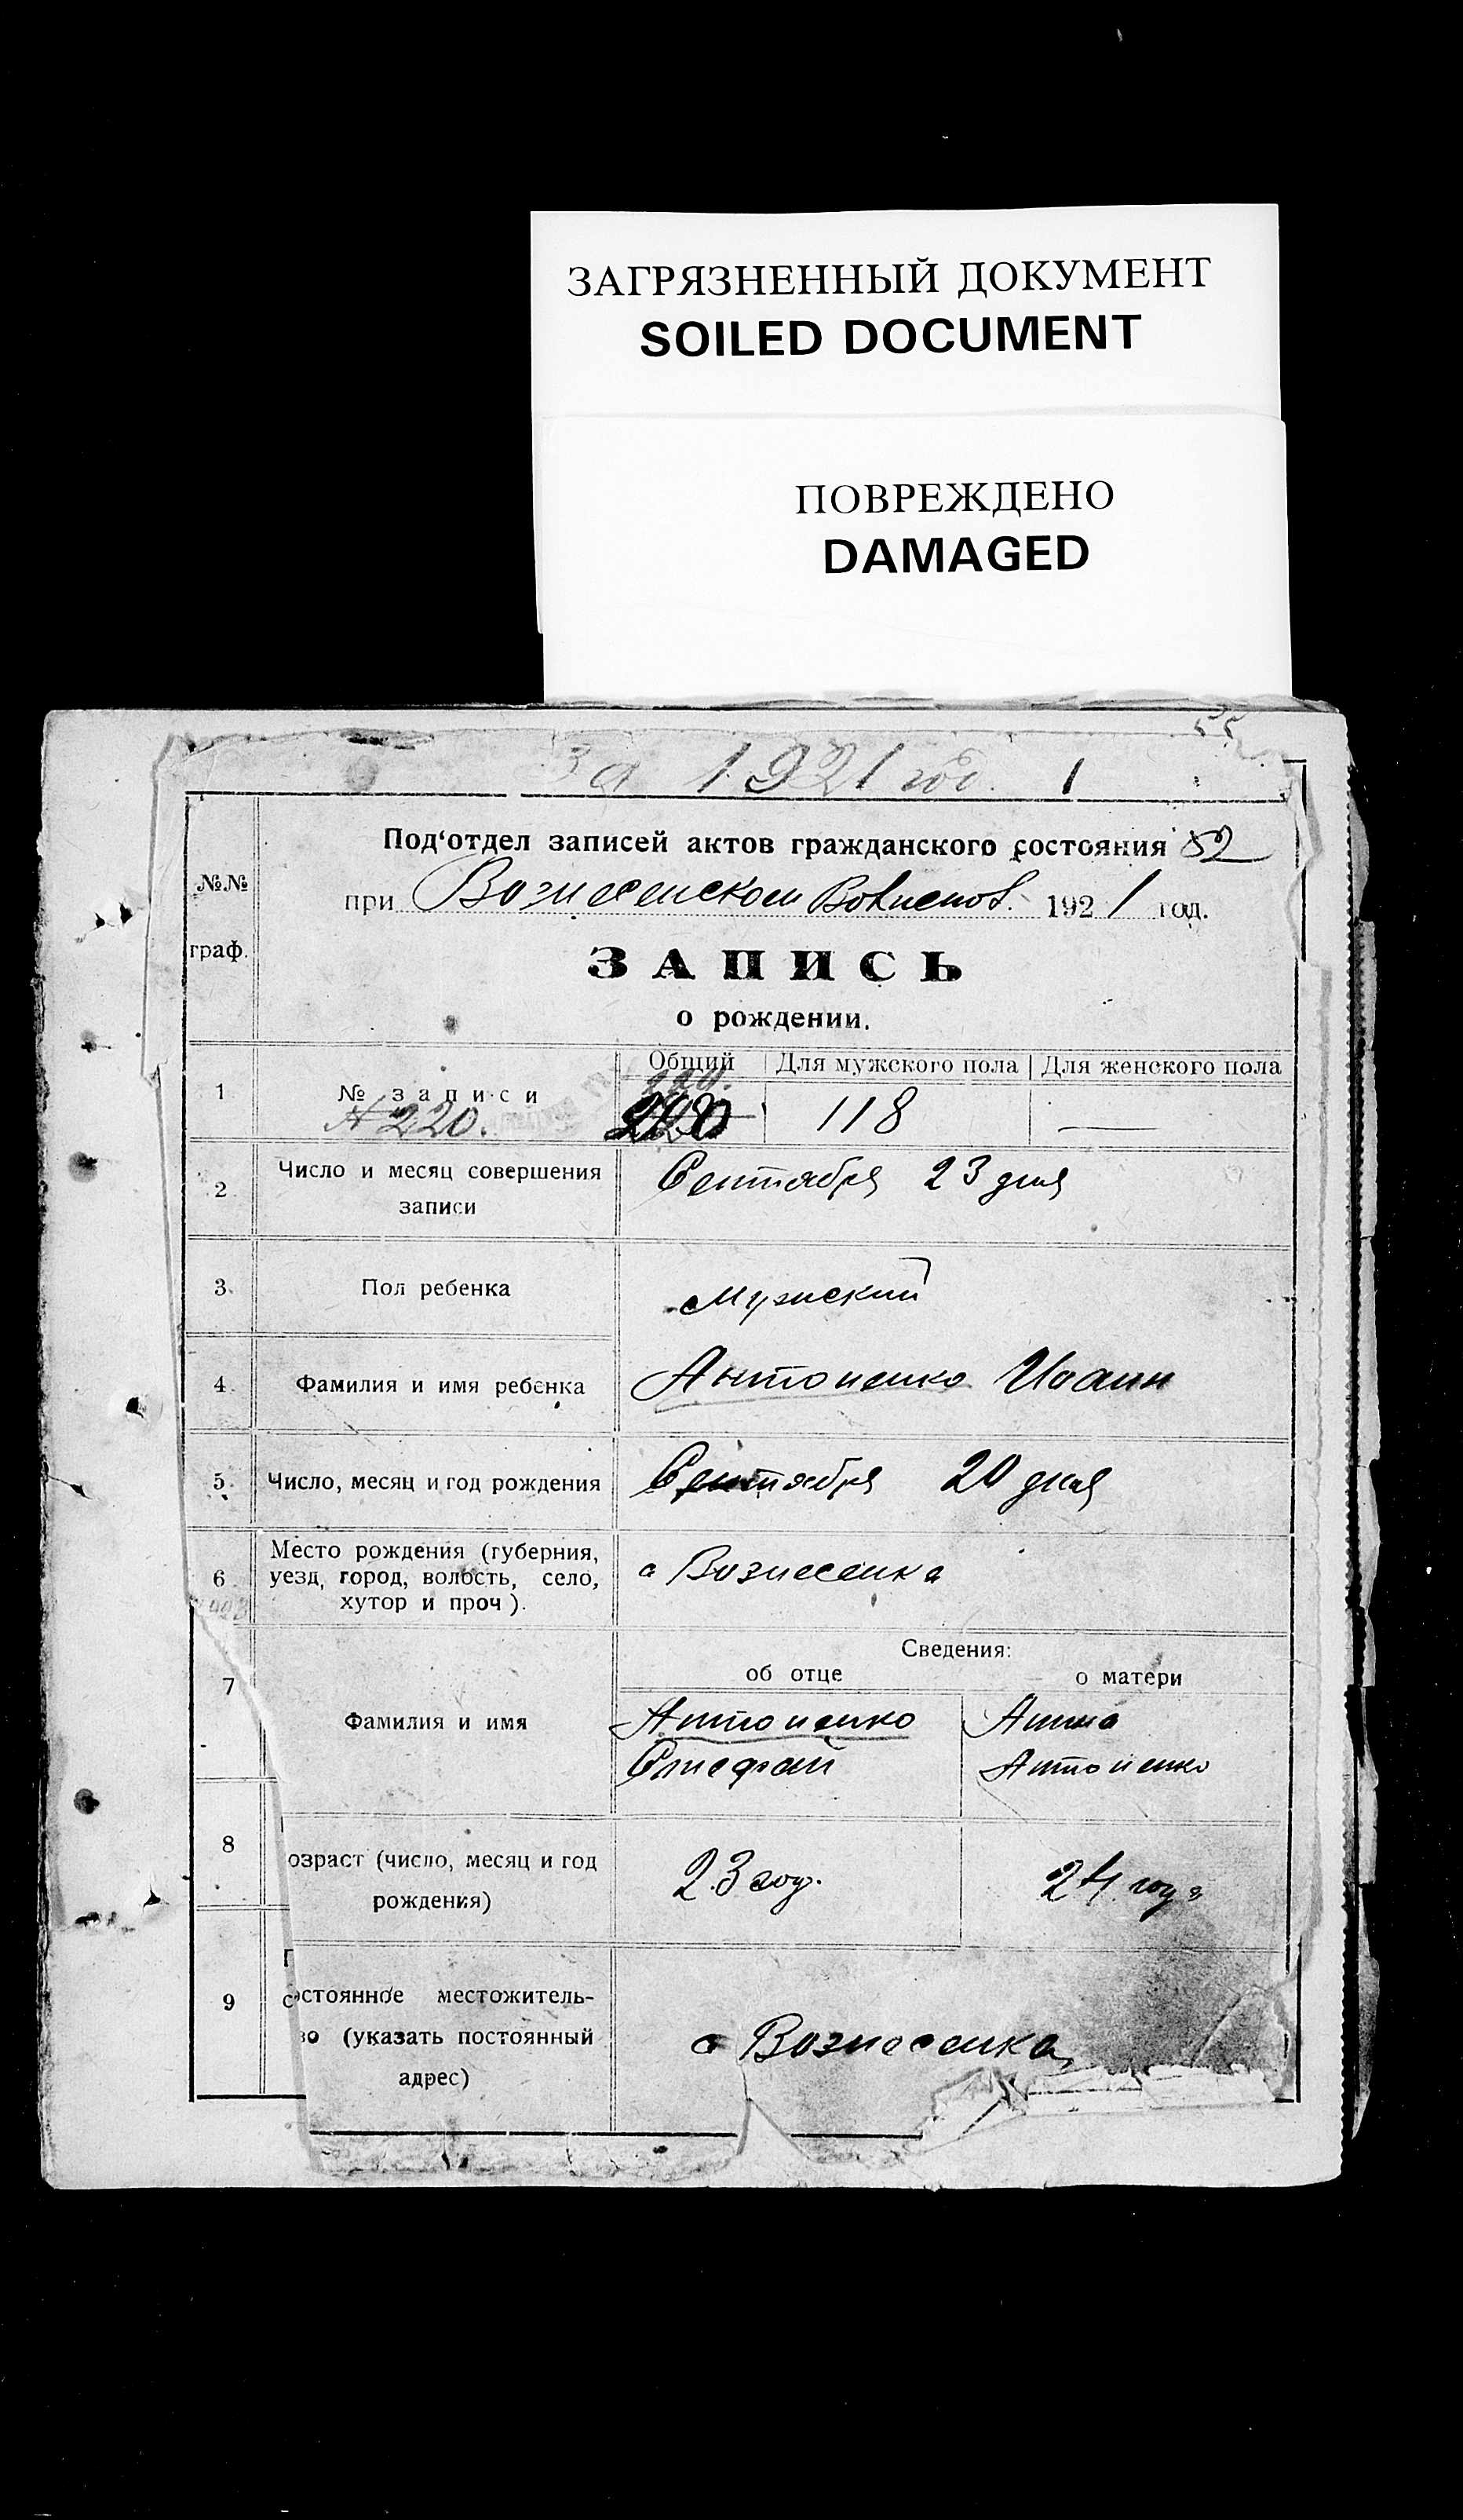 ЗАГРЯЗНЕННЫЙ ДОКУМЕНТ
SOILED DOCUMENT
ПОВРЕЖДЕНО
DAMAGED
55
За 1921 год. 1
Под‘отдел записей актов гражданского состояния 82
№№ граф.
при Вознесенском 1921 год.
ЗАПИСЬ
о рождении.
Общий Для мужского пола Для женского пола
1 № записи 118 —
№ 220.
2 Число и месяц совершения записи Сентября 23 дня
3 Пол ребенка Мужский
4 Фамилия и имя ребенка Антоненко Иоанн
5 Число, месяц и год рождения Сентября 20 дня
6 Место рождения (губерния, с Вознесенка
уезд, город, волость, село,
хутор и проч).
Сведения:
об отце о матери
7 Фамилия и имя Антоненко Анна
Стефан Антоненко
8 озраст (число, месяц и год 23 год. 24 года
рождения)
9 стоянное местожитель-
во (указать постоянный с Вознесенка
адрес)